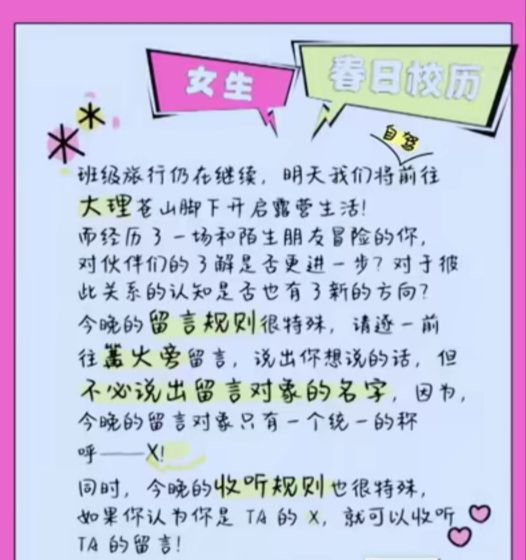 女生
春日校历
自驾
班级旅行仍在继续，明天我们将前往
大理苍山脚下开启露营生活！
而经历了一场和陌生朋友冒险的你，
对伙伴们的了解是否更进一步？对于彼
此关系的认知是否也有了新的方向？
今晚的留言规则很特殊，请逐一前
往篝火旁留言，说出你想说的话，但
不必说出留言对象的名字，因为，
今晚的留言对象只有一个统一的称
呼——X！
同时，今晚的收听规则也很特殊，
如果你认为你是 TA 的 X，就可以收听
TA 的留言！